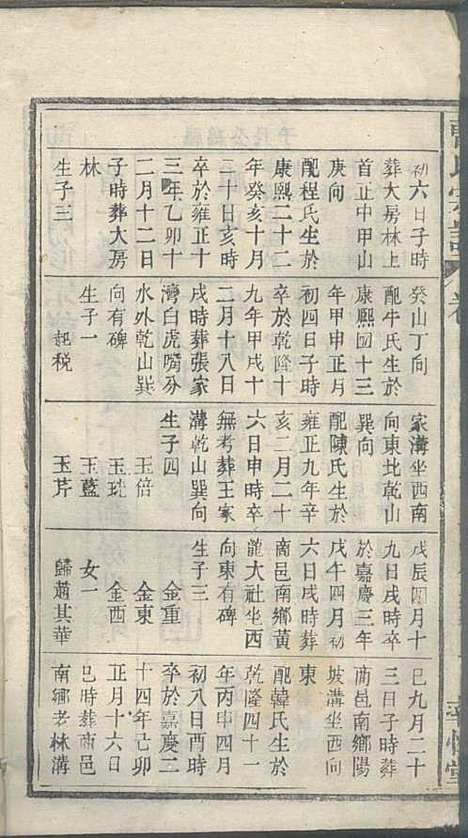 初六日子時
葬大房林上
首正中甲山
庚向
配程氏生於
康熙二十二
年癸亥十月
二十日亥時
卒於雍正十
三年乙卯十
二月十二日
子時葬大房
林
生子三
癸山丁向
配牛氏生於
康熙四十三
年甲申正月
初四日子時
卒於乾隆十
九年甲戌十
二月十八日
戌時葬張家
灣白虎嘴分
水外乾山巽
向有碑
生子一
起税
家溝坐西南
向東北乾山
巽向
配陳氏生於
雍正九年辛
亥二月二十
六日申時卒
無考葬王家
溝乾山巽向
生子四
玉倍
玉珗
玉藍
玉芹
戊辰四月十
九日戌時卒
於嘉慶三年
戊午四月初
六日戌時葬
商邑南鄉黃
龍大社坐西
向東有碑
生子三
金重
金東
金西
女一
歸趙其華
巳九月二十
三日子時葬
商邑南鄉陽
坡溝坐西向
東
配韓氏生於
乾隆四十一
年丙申四月
初八日酉時
卒於嘉慶二
十四年己卯
正月十六日
巳時葬商邑
南鄉老林溝
氏宗譜
卷
堂